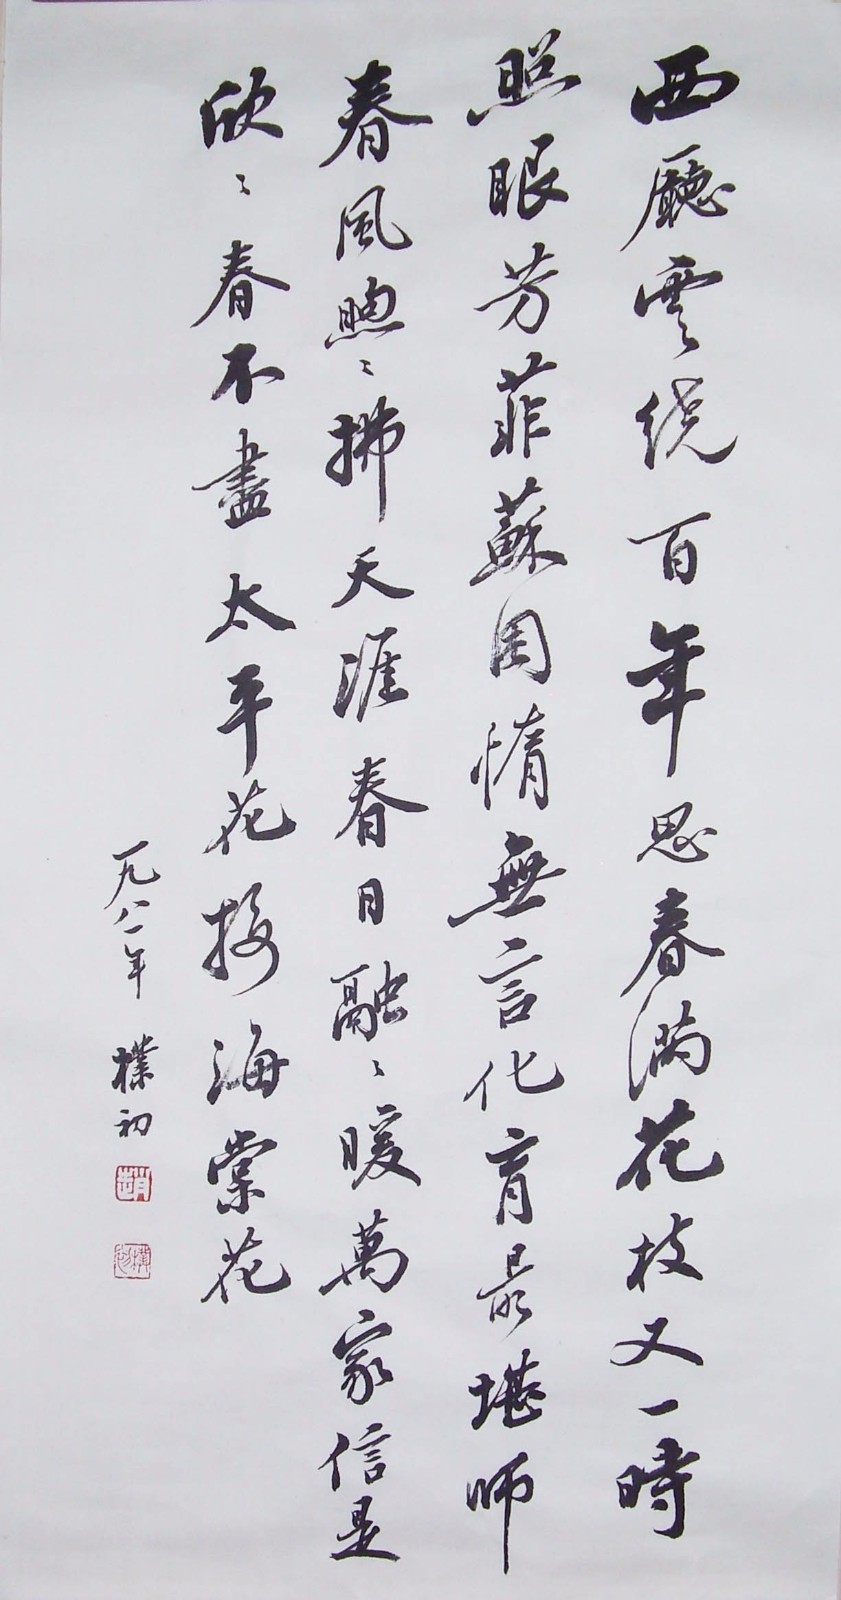 西廳雲绕百年思春满花枝又一時
照眼芳菲蘇困惰無言化育最堪師
春風煦〻拂天涯春日融〻暖萬家信是
欣〻春不盡太平花接海棠花
一九八一年 樸初
趙
樸初